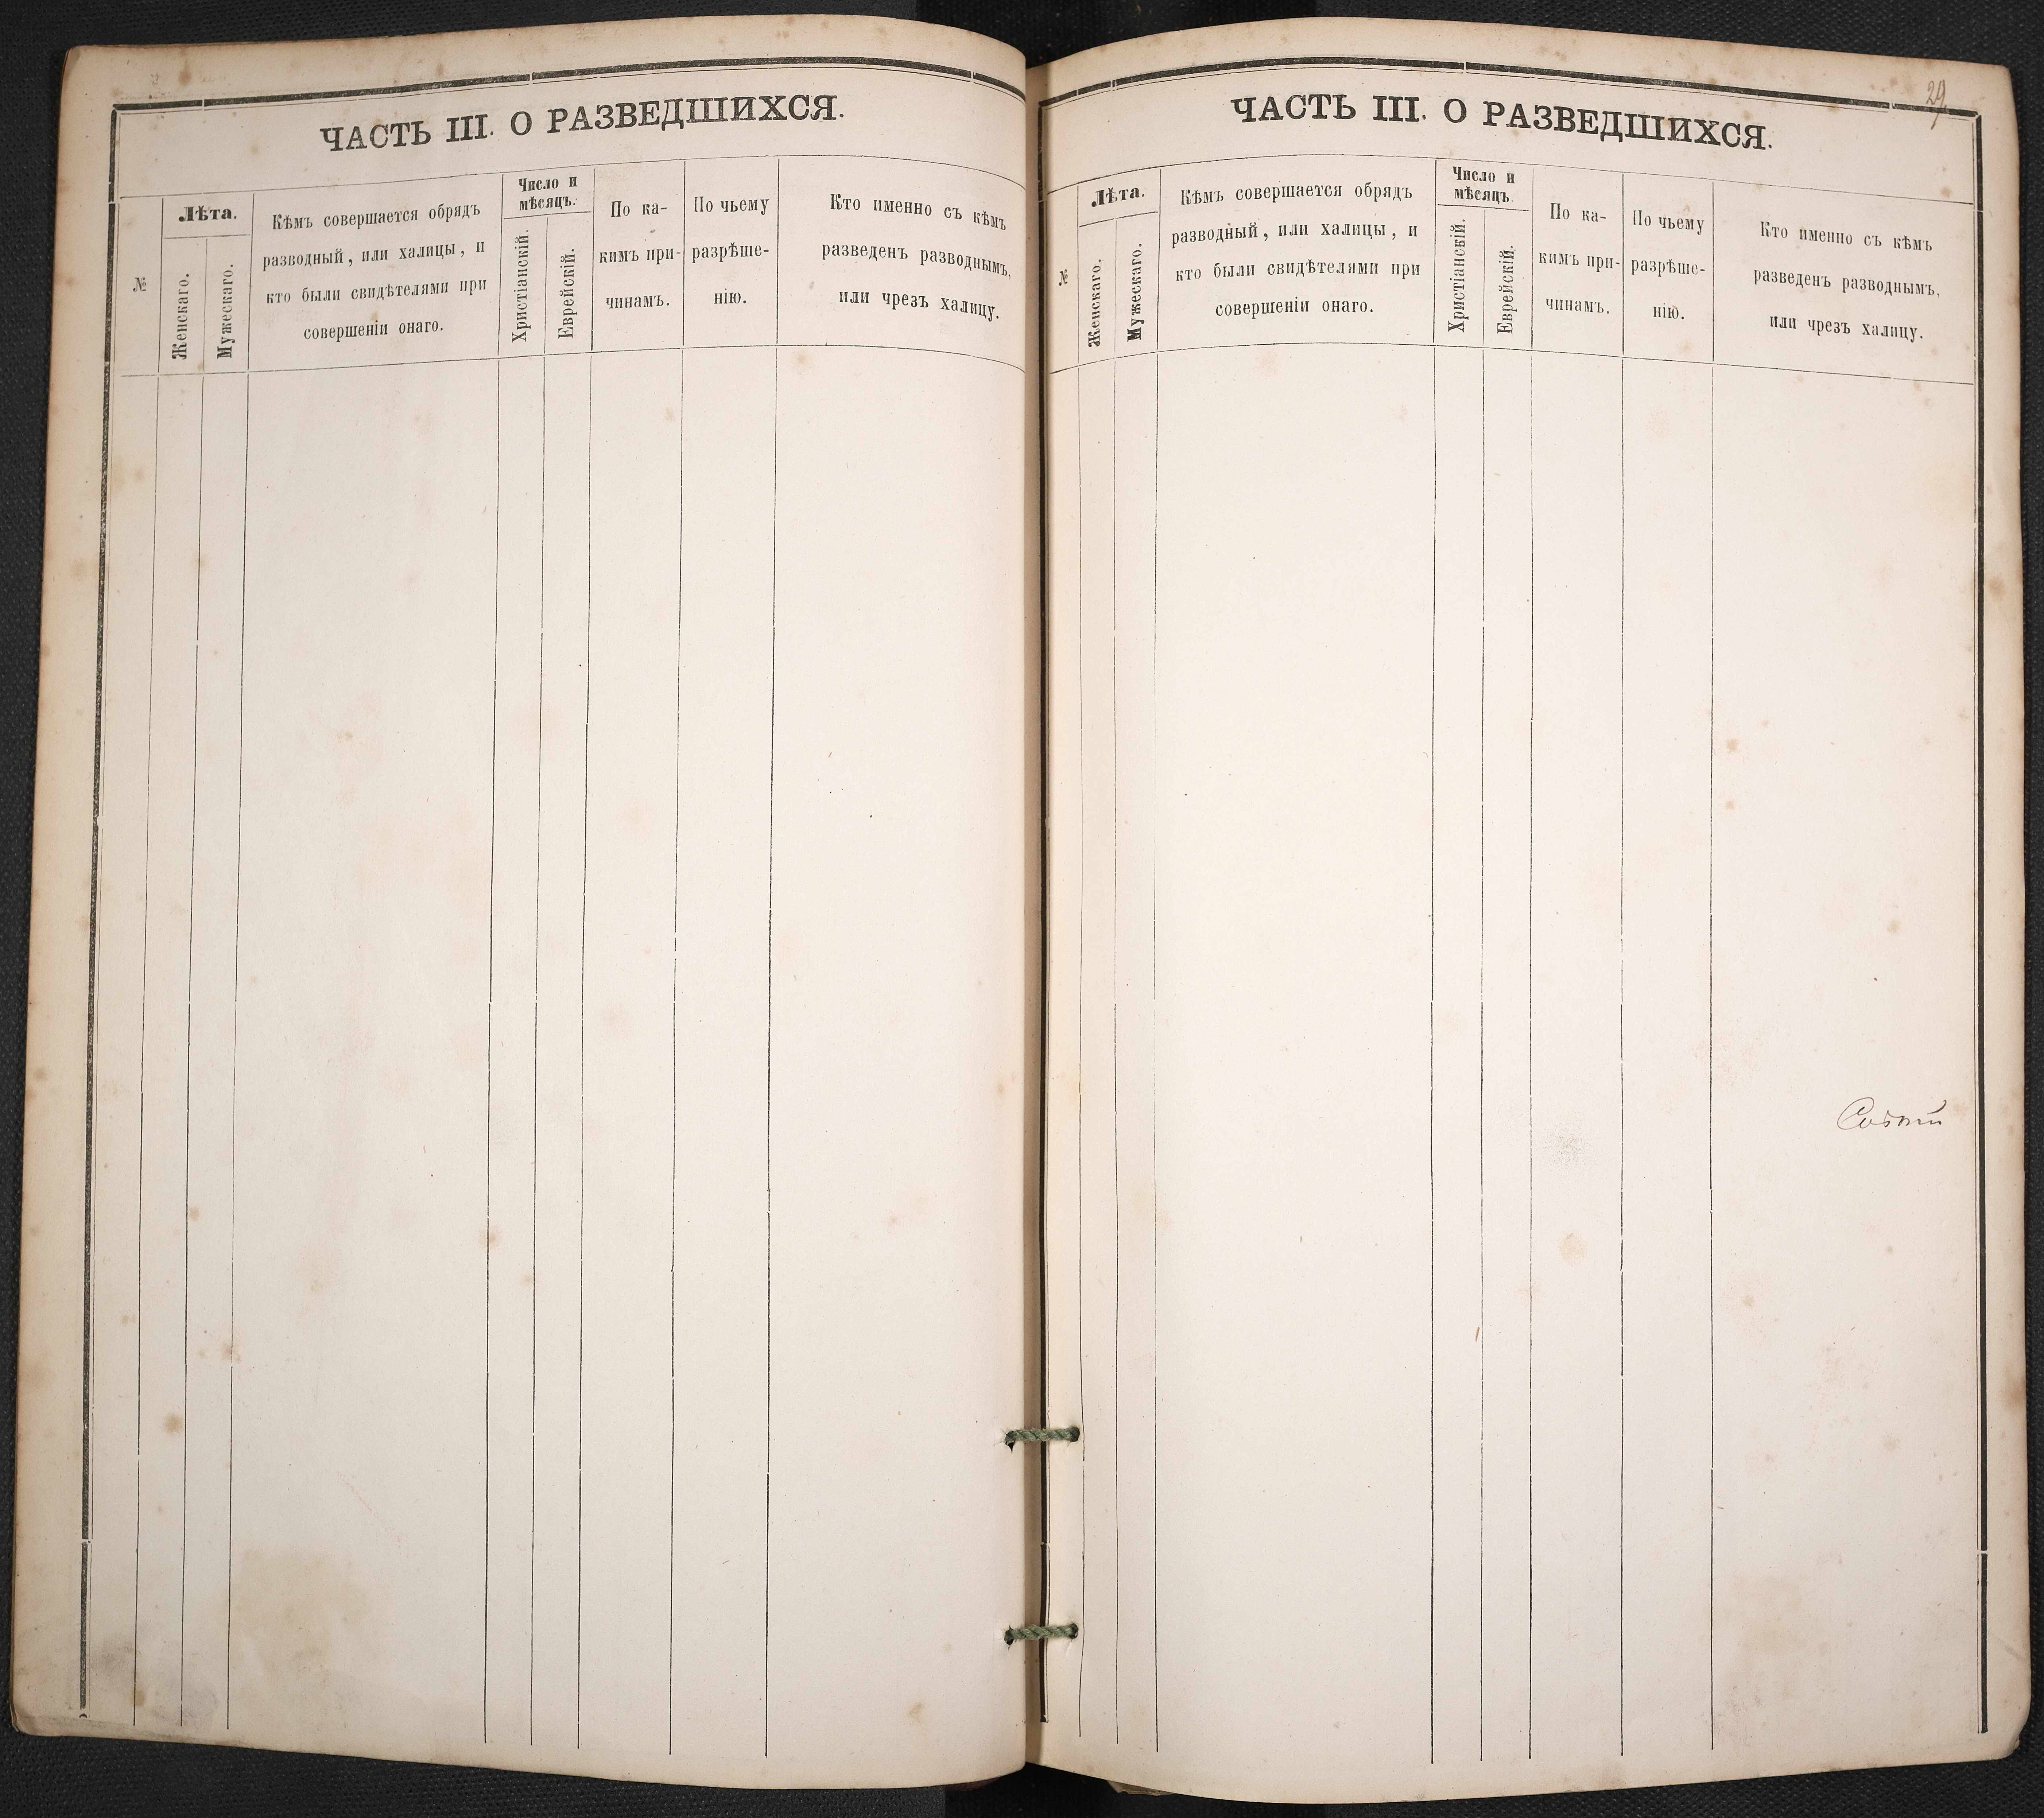 ЧАСТЬ III. О РАЗВЕДШИХСЯ.
№
Лѣта.
Женскаго.
Мужескаго.
Кѣмъ совершается обрядъ
разводный, или халицы, и
кто были свидѣтелями при
совершеніи онаго.
Число и
мѣсяцъ.
Христіанскій.
Еврейскій.
По ка-
кимъ при-
чинамъ.
По чьему
разрѣше-
нію.
Кто именно съ кѣмъ
разведенъ разводнымъ,
или чрезъ халицу.
29
ЧАСТЬ III. О РАЗВЕДШИХСЯ.
№
Лѣта.
Женскаго.
Мужескаго.
Кѣмъ совершается обрядъ
разводный, или халицы, и
кто были свидѣтелями при
совершеніи онаго.
Число и
мѣсяцъ
Христіанскій.
Еврейскій.
По ка-
кимъ при-
чинамъ.
По чьему
разрѣше-
нію.
Кто именно съ кѣмъ
разведенъ разводнымъ,
или чрезъ халицу.